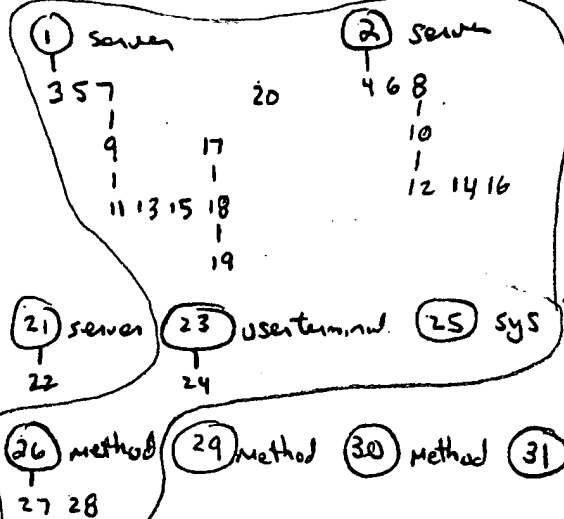 1 server 2 server
3 5 7 20 4 6 8
9 17 10
11 13 15 18 12 14 16
19
21 server 23 user terminal. 25 sys
22 24
26 method 29 method 30 method 31
27 28